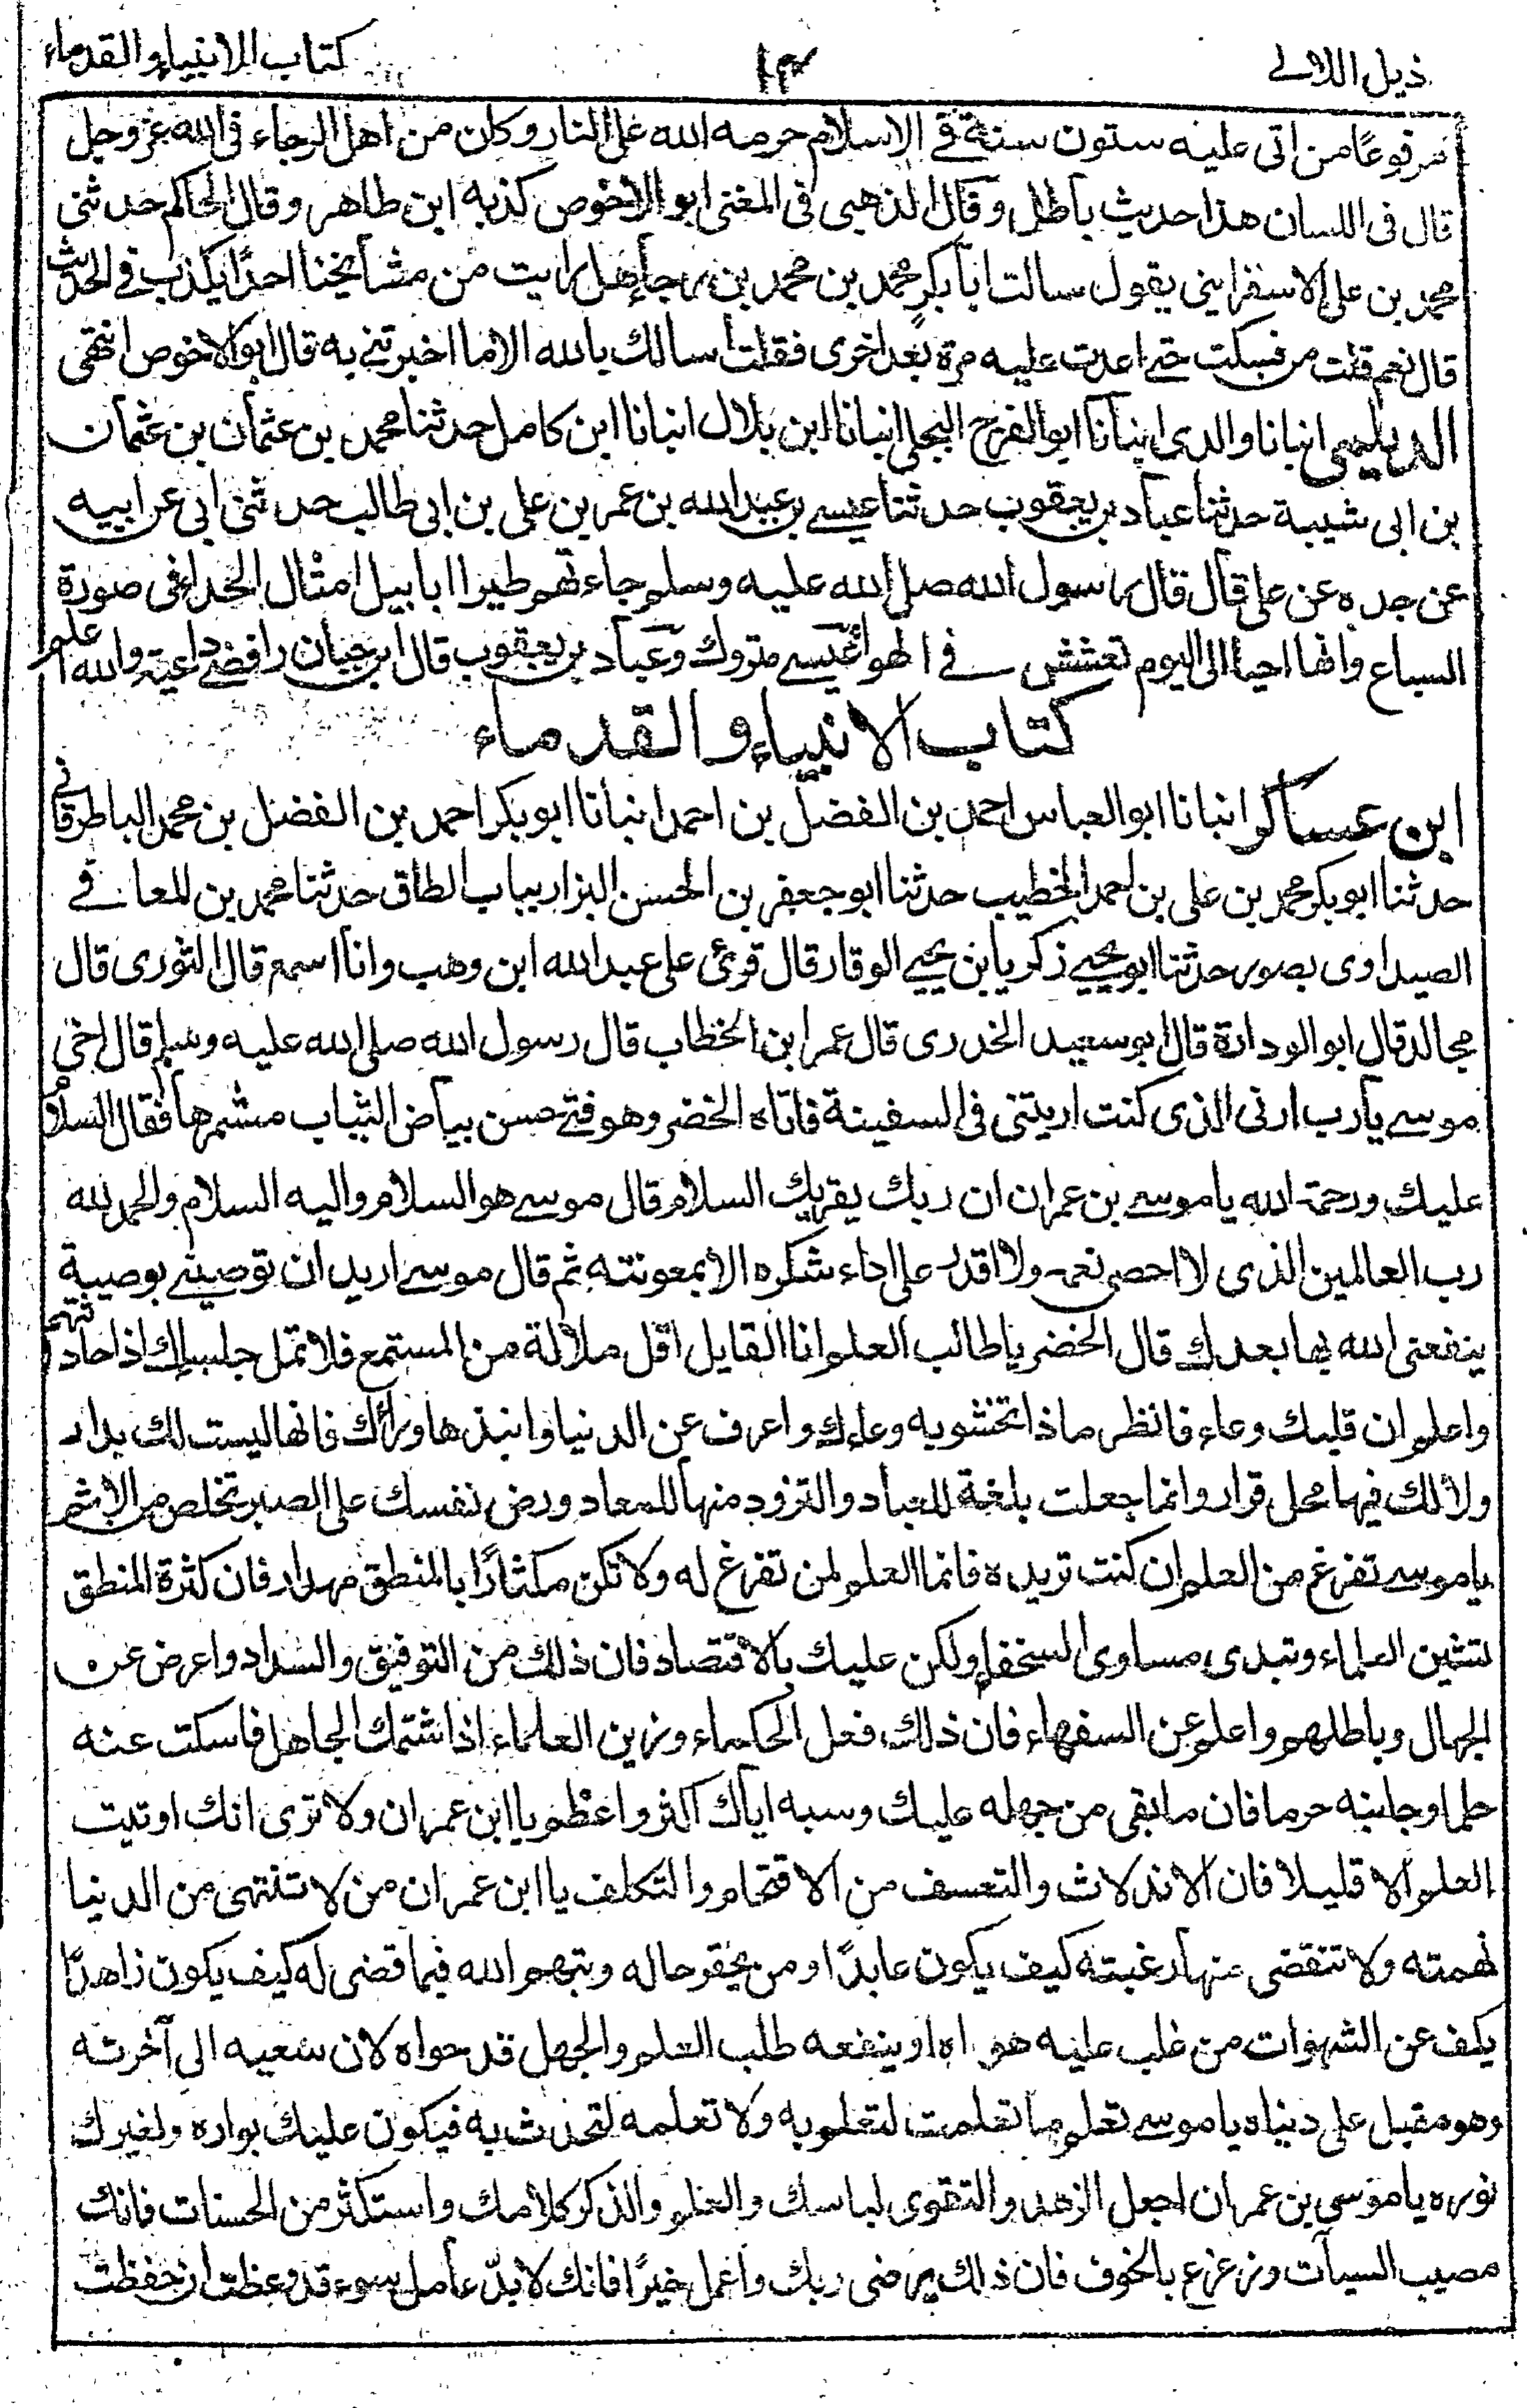 ذيل اللالے
١٣
كتاب الانبياء والقدماء
مرفوعًا من اتى عليه ستون سنة في الاسلام حرمه الله على النار وكان من اهل الرجاء فى الله عز وجل
قال فى اللسان هذا حديث باطل وقال الذهبى فى المغنى ابو الاخوص كذبه ابن طاهر وقال الحاكم حدثنى
محمد بن على الاسفراينى يقول سالت ابا بكر محمد بن محمد بن رجاء هل رايت من مشايخنا احدًا يكذب في الحديث
قال نعم قلت من فسكت حتے اعدت عليه مرة بعد اخرى فقلت اسالك بالله الا ما اخبرتنے به قال ابو الاخوص انتهى
الديلمى انبانا والدى انبانا ابو الفرج البجلى انبانا ابن بلال انبانا ابن كامل حدثنا محمد بن عثمان بن عثمان
بن ابى شيبة حدثنا عباد بن يعقوب حدثنا عيسے بن عبد الله بن عمر بن على بن ابى طالب حدثنى ابى عن ابيه
عن جده عن على قال قال رسول الله صلى الله عليه وسلم جاءتهم طيرا ابابيل امثال الحدا فى صورة
السباع وانها احيا الى اليوم تعشش في الهوا عيسے متروك وعباد بن يعقوب قال ابن حبان رافضے داعية والله اعلم
كتاب الانبياء والقدماء
ابن عساكر انبانا ابو العباس احمد بن الفضل بن احمد انبانا ابو بكر احمد بن الفضل بن محمد الباطرقانے
حدثنا ابو بكر محمد بن على بن احمد الخطيب حدثنا ابو جعفر بن الحسن البزار بباب الطاق حدثنا محمد بن المعافے
الصيداوى بصور حدثنا ابو يحيے زكريا بن يحيے الوقار قال قرئ على عبد الله ابن وهب وانا اسمع قال الثورى قال
مجالد قال ابو الودادة قال ابو سعيد الخدرى قال عمر ابن الخطاب قال رسول الله صلى الله عليه وسلم قال اخى
موسے يا رب ارنى الذى كنت اريتنى فى السفينة فاتاه الخضر وهو فتے حسن بياض الثياب مشمرها فقال السلام
عليك ورحمة الله يا موسے بن عمران ان ربك يقريك السلام قال موسے هو السلام واليه السلام والحمد لله
رب العالمين الذى لا احصى نعمه ولا اقدر على اداء شكره الا بمعونته ثم قال موسے اريد ان توصينے بوصية
ينفعنى الله بها بعدك قال الخضر يا طالب العلم انا القايل اقل ملالة من المستمع فلا تمل جلساءك اذا حادثتهم
واعلم ان قلبك وعاء فانظر ماذا تحشو به وعاءك واعرف عن الدنيا وانبذها وراءك فانها ليست لك بدار
ولا لك فيها محل قرار وانما جعلت بلغة للعباد والتزود منها للمعاد ورض نفسك على الصبر تخلص من الاثم
يا موسے تفرغ من العلم ان كنت تريده فانما العلم لمن تفرغ له ولا تكن مكثارًا بالمنطق مهدار فان كثرة المنطق
تشين العلماء وتبدى مساوى السخفاء ولكن عليك بالاقتصاد فان ذلك من التوفيق والسداد واعرض عن
الجهال وباطلهم واعلم عن السفهاء فان ذلك فعل الحكماء وزين العلماء اذا شتمك الجاهل فاسكت عنه
حلما وجانبه حرما فان ما بقى من جهله عليك وسبه اياك اكثر واعظم يا ابن عمران ولا ترى انك اوتيت
العلم الا قليلا فان الاندلاث والتعسف من الاقتحام والتكلف يا ابن عمران من لا تنتهى من الدنيا
نهمته ولا تنقضى منها رغبته كيف يكون عابدًا ومن يحقر حاله ويتهم الله فيما قضى له كيف يكون زاهدًا
يكف عن الشهوات من غلب عليه هواه او ينفعه طلب العلم والجهل قد حواه لان سعيه الى آخرته
وهو مقبل على دنياه يا موسے تعلم ما تعلمت لتعلم به ولا تعلمه لتحدث به فيكون عليك بواره ولغيرك
نوره يا موسى بن عمران اجعل الزهد والتقوى لباسك والعلم والذكر كلامك واستكثر من الحسنات فانك
مصيب السيآت وزعزع بالخوف فان ذلك يرضى ربك واعمل خيرًا فانك لا بدّ عامل سوء قد وعظت ان حفظت